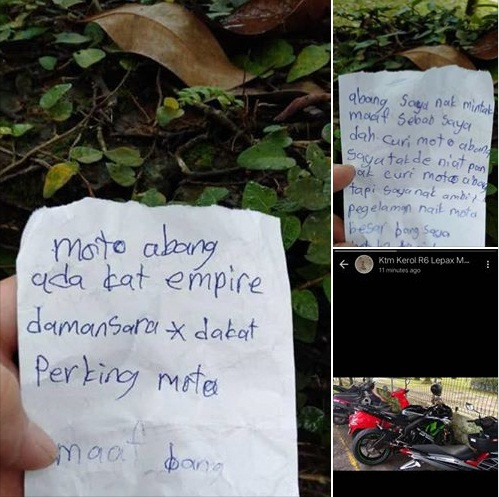 moto abang
ada kat empire
damansara x dakat
Perking mota
maaf bang
abang saya nak mintak
maaf sebab saya
dah curi moto abang
saya tak de niat pon
nak curi moto abang
tapi saya nak ambik
pegelaman naik moto
besar bang saya
Ktm Kerol R6 Lepax M...
11 minutes ago